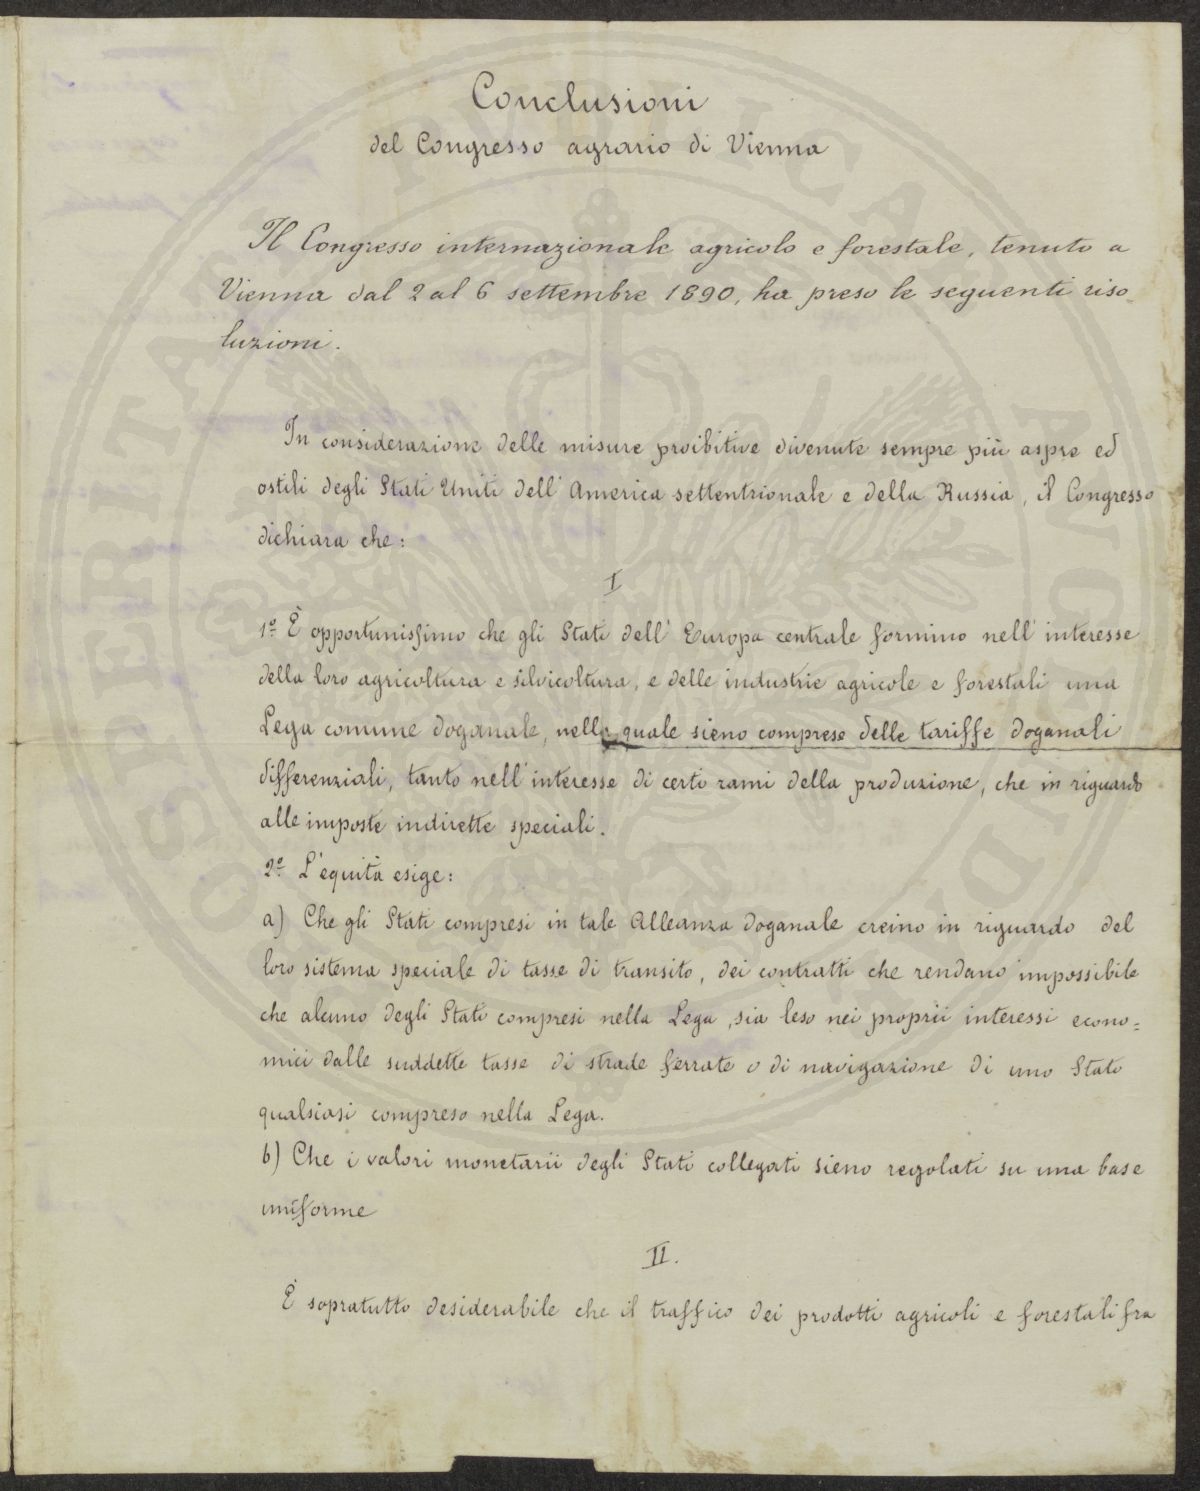 Conclusioni
del Congresso agrario di Vienna
Il Congresso internazionale agricolo e forestale, tenuto a
Vienna dal 2 al 6 settembre 1890, ha preso le seguenti riso
luzioni.
In considerazione delle misure proibitive divenute sempre più aspre ed
ostili degli Stati Uniti dell'America settentrionale e della Russia, il Congresso
dichiara che:
I
1º È opportunissimo che gli Stati dell'Europa centrale formino nell'interesse
della loro agricoltura e silvicoltura, e delle industrie agricole e forestali una
Lega comune doganale, nella quale sieno comprese delle tariffe doganali
differenziali, tanto nell'interesse di certi rami della produzione, che in riguardo
alle imposte indirette speciali.
2º L'equità esige:
a) Che gli Stati compresi in tale Alleanza doganale creino in riguardo del
loro sistema speciale di tasse di transito, dei contratti che rendano impossibile
che alcuno degli Stati compresi nella Lega, sia leso nei proprii interessi econo=
mici dalle suddette tasse di strade ferrate o di navigazione di uno Stato
qualsiasi compreso nella Lega.
b) Che i valori monetarii degli Stati collegati sieno regolati su una base
uniforme
II.
È sopratutto desiderabile che il traffico dei prodotti agricoli e forestali fra